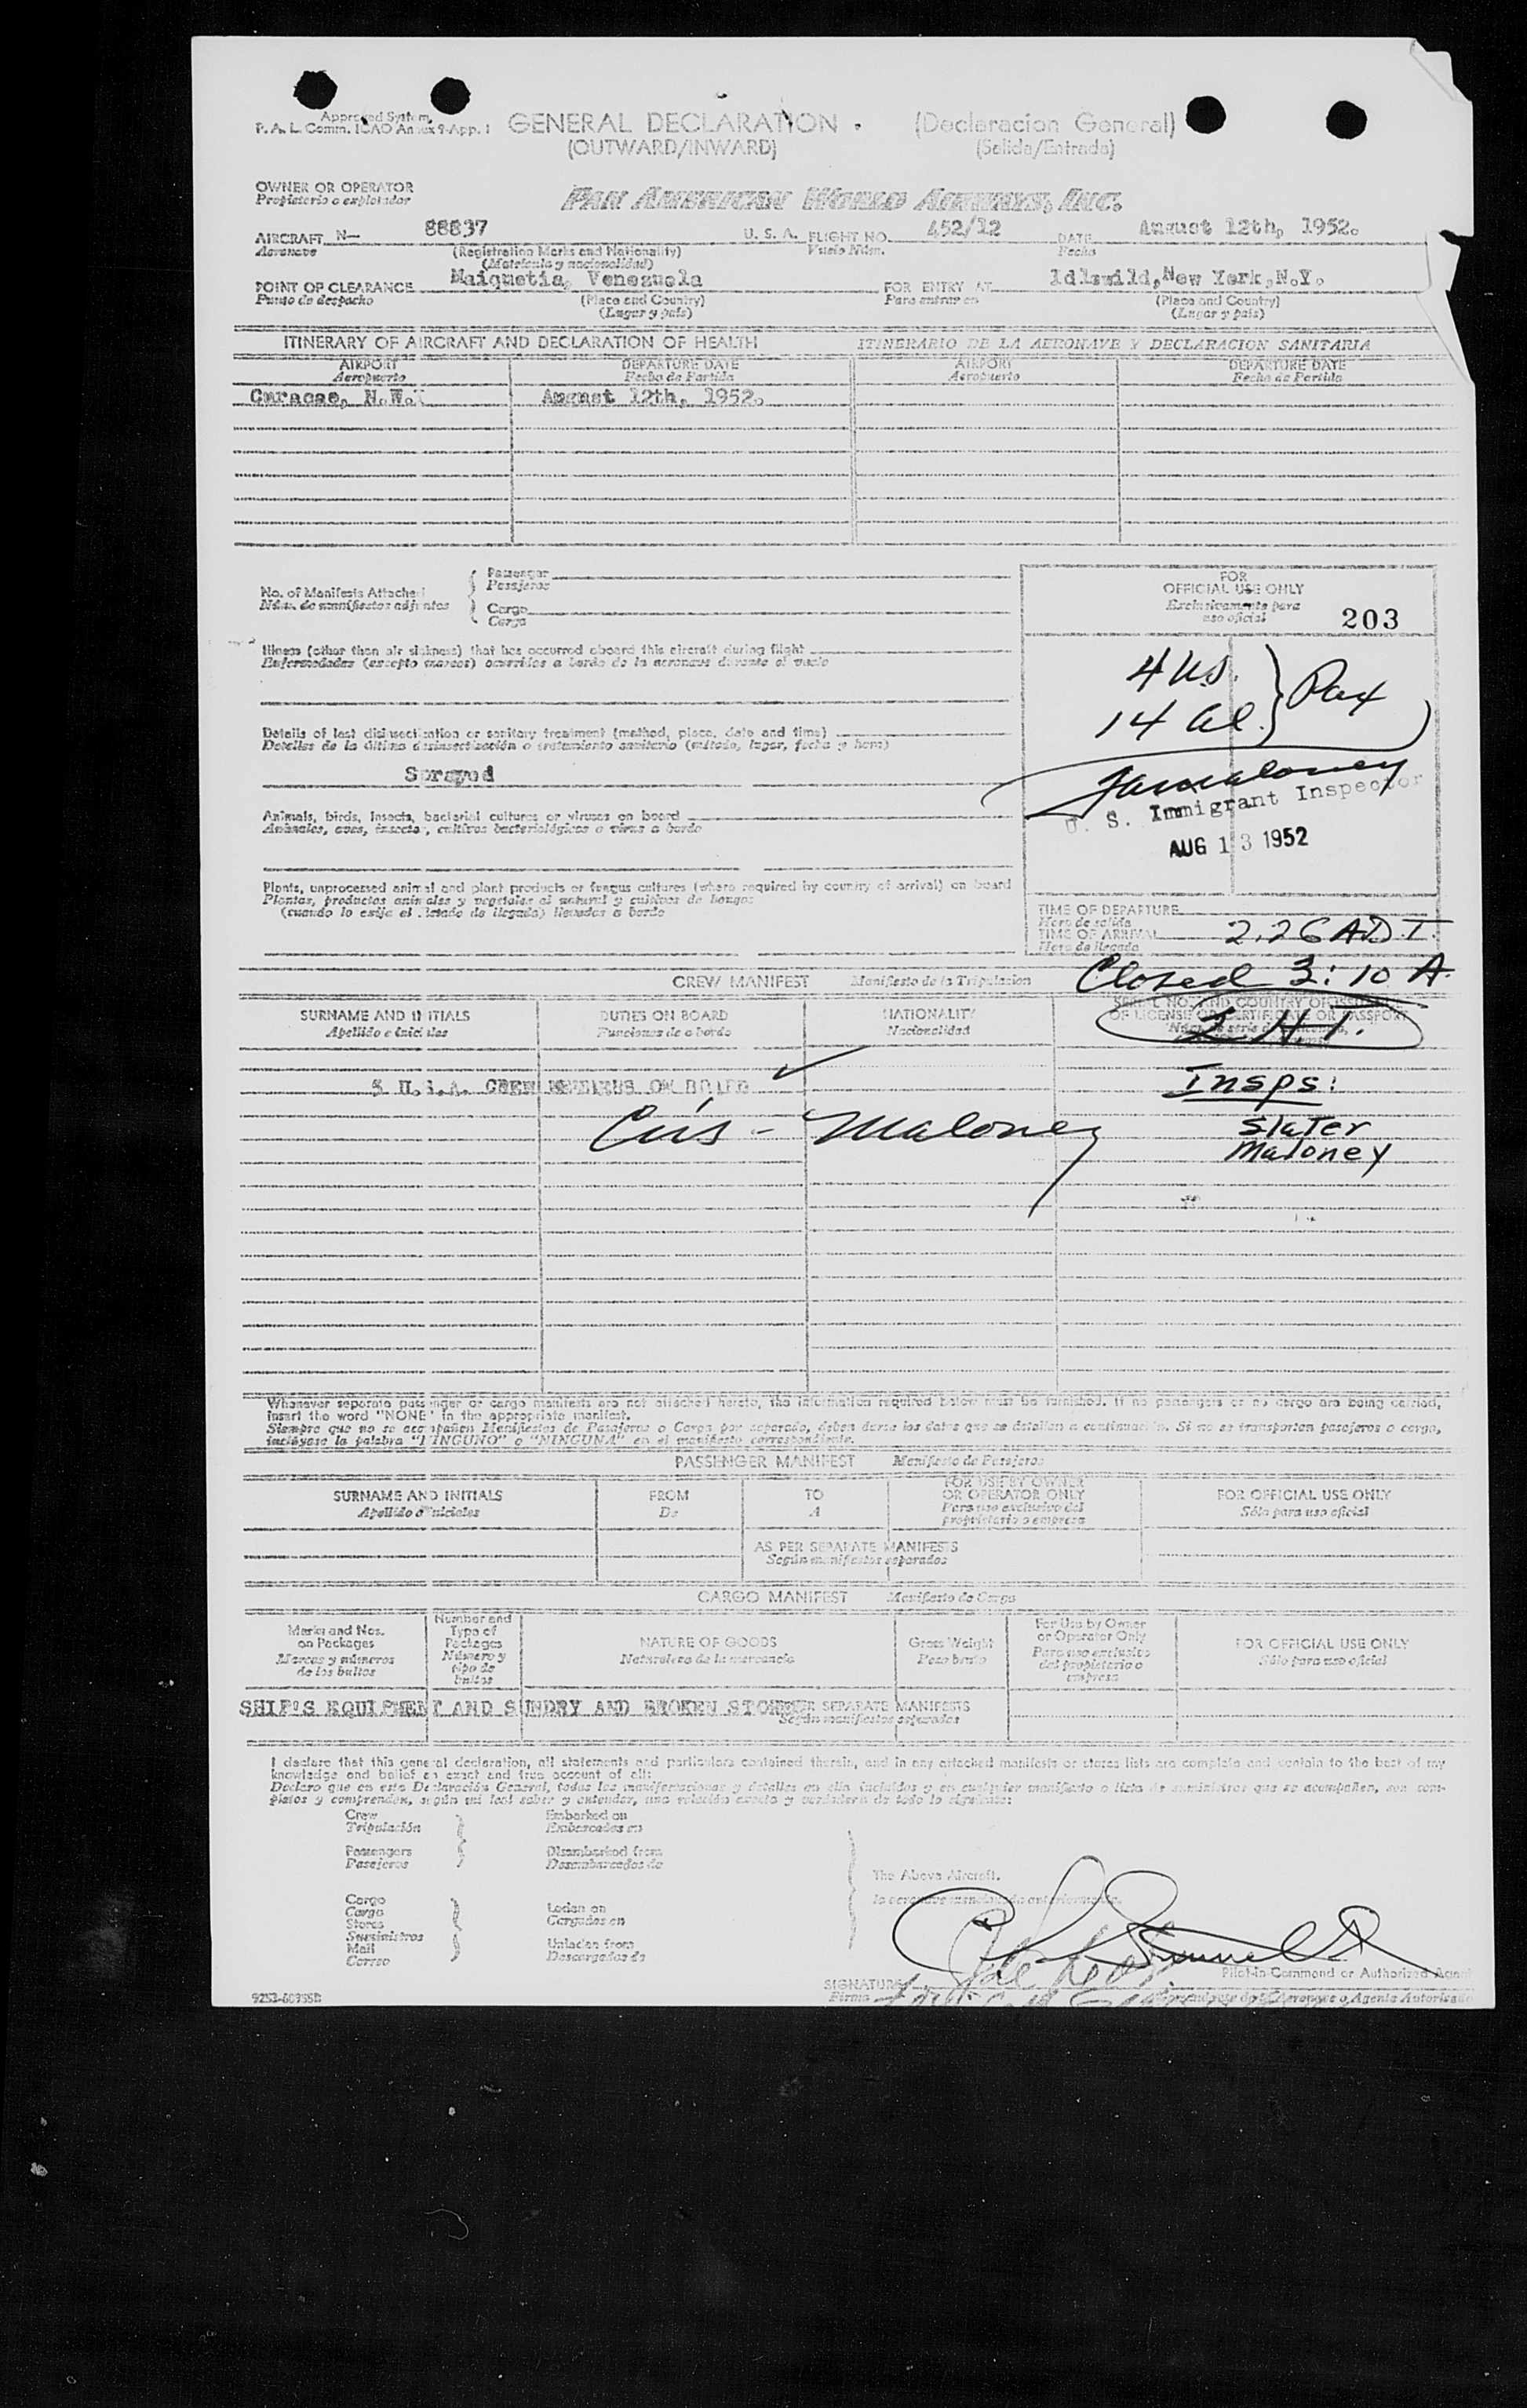 Approved System
P. A. L. Comm. ICAO Annex 9-App. 1
GENERAL DECLARATION . (Declaracion General)
(OUTWARD/INWARD) (Salida/Entrada)
OWNER OR OPERATOR
Propietario o explotador
PAN AMERICAN WORLD AIRWAYS, INC.
AIRCRAFT N— 88837 U. S. A. FLIGHT NO. 452/12 DATE August 12th, 1952.
Aeronave (Registration Marks and Nationality) Vuelo Núm. Fecha
(Matrícula y nacionalidad)
POINT OF CLEARANCE Maiquetia, Venezuela FOR ENTRY AT Idlewild,New York,N.Y.
Punto de despacho (Place and Country) Para entrar en (Place and Country)
(Lugar y país) (Lugar y país)
ITINERARY OF AIRCRAFT AND DECLARATION OF HEALTH ITINERARIO DE LA AERONAVE Y DECLARACION SANITARIA
AIRPORT DEPARTURE DATE AIRPORT DEPARTURE DATE
Aeropuerto Fecha de Partida Aeropuerto Fecha de Partida
Curacao, N.W. August 12th, 1952.
No. of Manifests Attached
Núm. de manifiestos adjuntos
Passenger
Pasajeros
Cargo
Carga
FOR
OFFICIAL USE ONLY
Exclusivamente para
uso oficial
203
Illness (other than air sickness) that has occurred aboard this aircraft during flight
Enfermedades (excepto mareos) ocurridas a bordo de la aeronave durante el vuelo
4 US.
14 al. } Pax
Details of last disinsectization or sanitary treatment (method, place, date and time)
Detalles de la última desinsectización o tratamiento sanitario (método, lugar, fecha y hora)
Sprayed
Maloney
U. S. Immigrant Inspector
AUG 13 1952
Animals, birds, insects, bacterial cultures or viruses on board
Animales, aves, insectos, cultivos bacteriológicos o virus a bordo
Plants, unprocessed animal and plant products or fungus cultures (where required by country of arrival) on board
Plantas, productos animales y vegetales al natural y cultivos de hongos
(cuando lo exija el Estado de llegada) llevados a bordo
TIME OF DEPARTURE
Hora de salida
TIME OF ARRIVAL 2.26 A D.T.
Hora de llegada
Closed 3:10 A.
CREW MANIFEST Manifiesto de la Tripulacion
SURNAME AND INITIALS DUTIES ON BOARD NATIONALITY SERIAL NO. AND COUNTRY OF ISSUANCE
Apellido e iniciales Funciones de a bordo Nacionalidad OF LICENSE OR CERTIFICATE OR PASSPORT
5 U.S.A. CREW MEMBERS ON BOARD ✓
Insps:
Slater
Maloney
Maloney
Whenever separate passenger or cargo manifests are not attached hereto, the information required below must be furnished. If no passengers or no cargo are being carried,
insert the word "NONE" in the appropriate manifest.
Siempre que no se acompañen Manifiestos de Pasajeros o Carga por separado, deben darse los datos que se detallan a continuación. Si no se transportan pasajeros o carga,
inclúyase la palabra "NINGUNO" o "NINGUNA" en el manifiesto correspondiente.
PASSENGER MANIFEST Manifiesto de Pasajeros
SURNAME AND INITIALS FROM TO FOR USE BY OWNER OR OPERATOR ONLY FOR OFFICIAL USE ONLY
Apellido o iniciales De A Para uso exclusivo del propietario o empresa Sólo para uso oficial
AS PER SEPARATE MANIFESTS
Según manifiestos separados
CARGO MANIFEST Manifiesto de Carga
Marks and Nos. on Packages
Marcas y números de los bultos
Number and Type of Packages
Número y tipo de bultos
NATURE OF GOODS
Naturaleza de la mercancia
Gross Weight
Peso bruto
For Use by Owner or Operator Only
Para uso exclusivo del propietario o empresa
FOR OFFICIAL USE ONLY
Sólo para uso oficial
SHIP'S EQUIPMENT AND SUNDRY AND BROKEN STORES
PER SEPARATE MANIFESTS
Según manifiestos separados
I declare that this general declaration, all statements and particulars contained therein, and in any attached manifests or stores lists are complete and contain to the best of my
knowledge and belief an exact and true account of all:
Declaro que en esta Declaración General, todas las manifestaciones y detalles en ella incluidos y en cualquier manifiesto o lista de suministros que se acompañen, son com-
pletos y comprenden, según mi leal saber y entender, una relación exacta y verdadera de todo lo siguiente:
Crew Embarked on
Tripulación Embarcados en
Passengers Disembarked from
Pasajeros Desembarcados de
The Above Aircraft.
la aeronave mencionada anteriormente.
Cargo Laden on
Carga Cargados en
Stores
Suministros
Mail Unladen from
Correo Descargados de
Pilot-in-Command or Authorized Agent
SIGNATURE
Firma Comandante de la Aeronave o Agente Autorizado